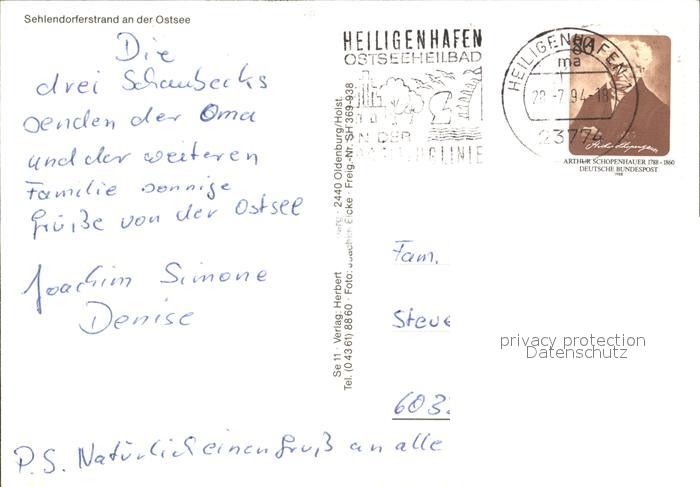 Sehlendorferstrand an der Ostsee
Die
drei Schaubecks
senden der Oma
und der weiteren
Familie sonnige
Grüße von der Ostsee
Joachim Simone
Denise
P.S. Natürlich einen Gruß an alle
Se 11 · Verlag: Herbert · 2440 Oldenburg/Holst.
Tel. (0 43 61) 88 60 · Foto: Joachim Eicke · Freig.-Nr. SH 369-938
HEILIGENHAFEN
OSTSEEHEILBAD
AN DER
LINIE
HEILIGENHAFEN
ma
28.-7.94-18
23774
80
ARTHUR SCHOPENHAUER 1788 - 1860
DEUTSCHE BUNDESPOST
1988
Fam.
Steve
603
privacy protection
Datenschutz